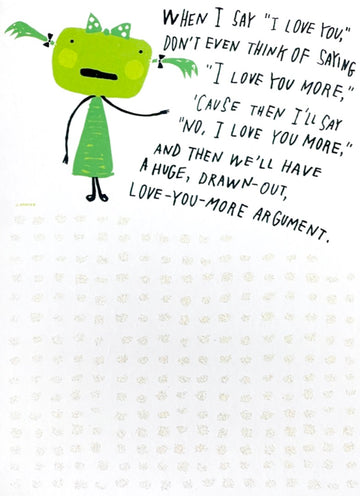 WHEN I SAY "I LOVE YOU,"
DON'T EVEN THINK OF SAYING
"I LOVE YOU MORE,"
'CAUSE THEN I'LL SAY
"NO, I LOVE YOU MORE,"
AND THEN WE'LL HAVE
A HUGE, DRAWN-OUT,
LOVE-YOU-MORE ARGUMENT.